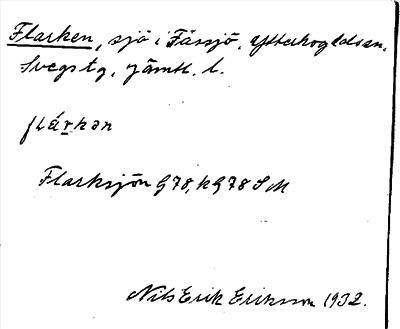 Flarken, sjö i Fässjö, Ytterhogdals sn,
Svegs tg, Jämtl. l.
flárkən
Flarksjön G78, kG78 SM
Nils Erik Eriksson 1932.